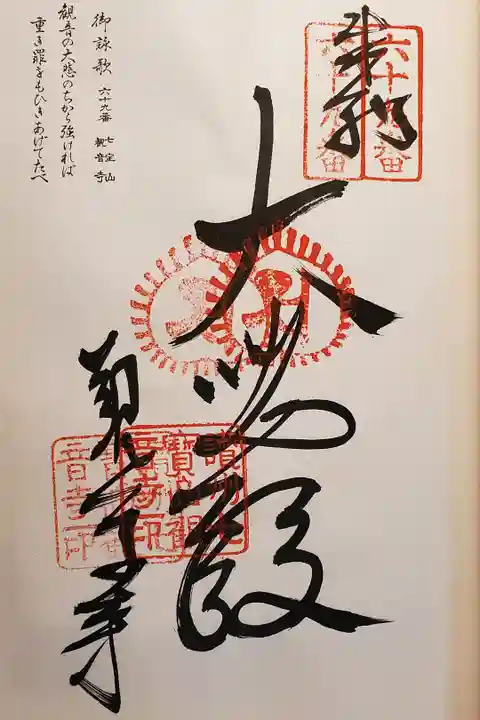 奉納
六十九番
大悲殿
観音寺
讃州七
寳山観
音寺印
御詠歌 六十九番 七宝山 観音寺
観音の大悲のちから強ければ
重き罪をもひきあげてたべ